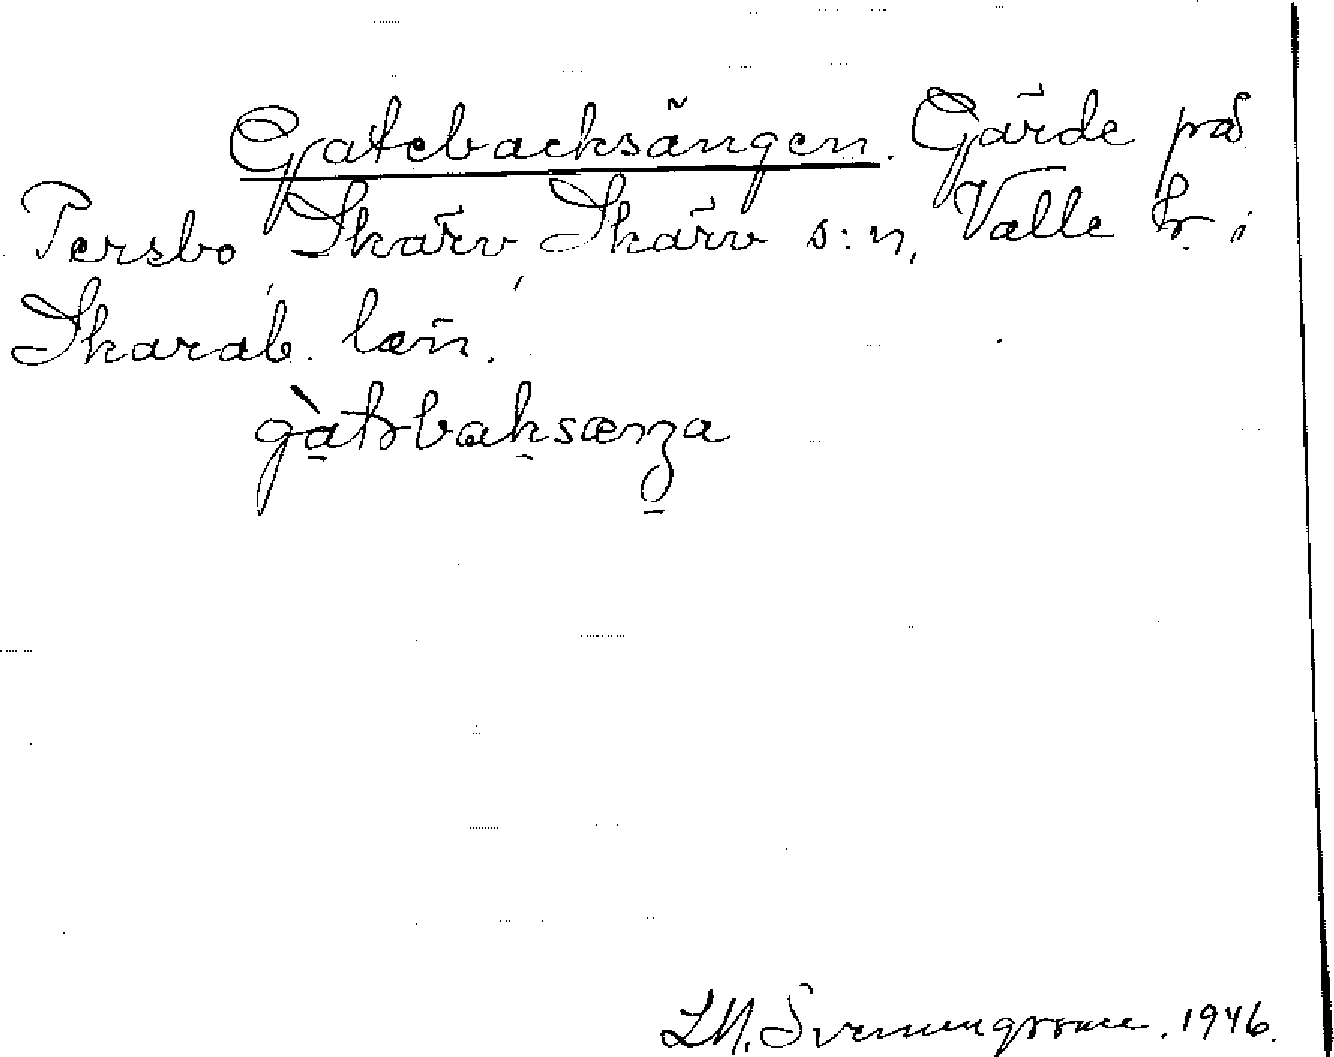 Gatebacksängen. Gärde på
Persbo, Skärv, Skärv s:n, Valle hr. i
Skarab. län.
gàtəbaksæŋa
1946.